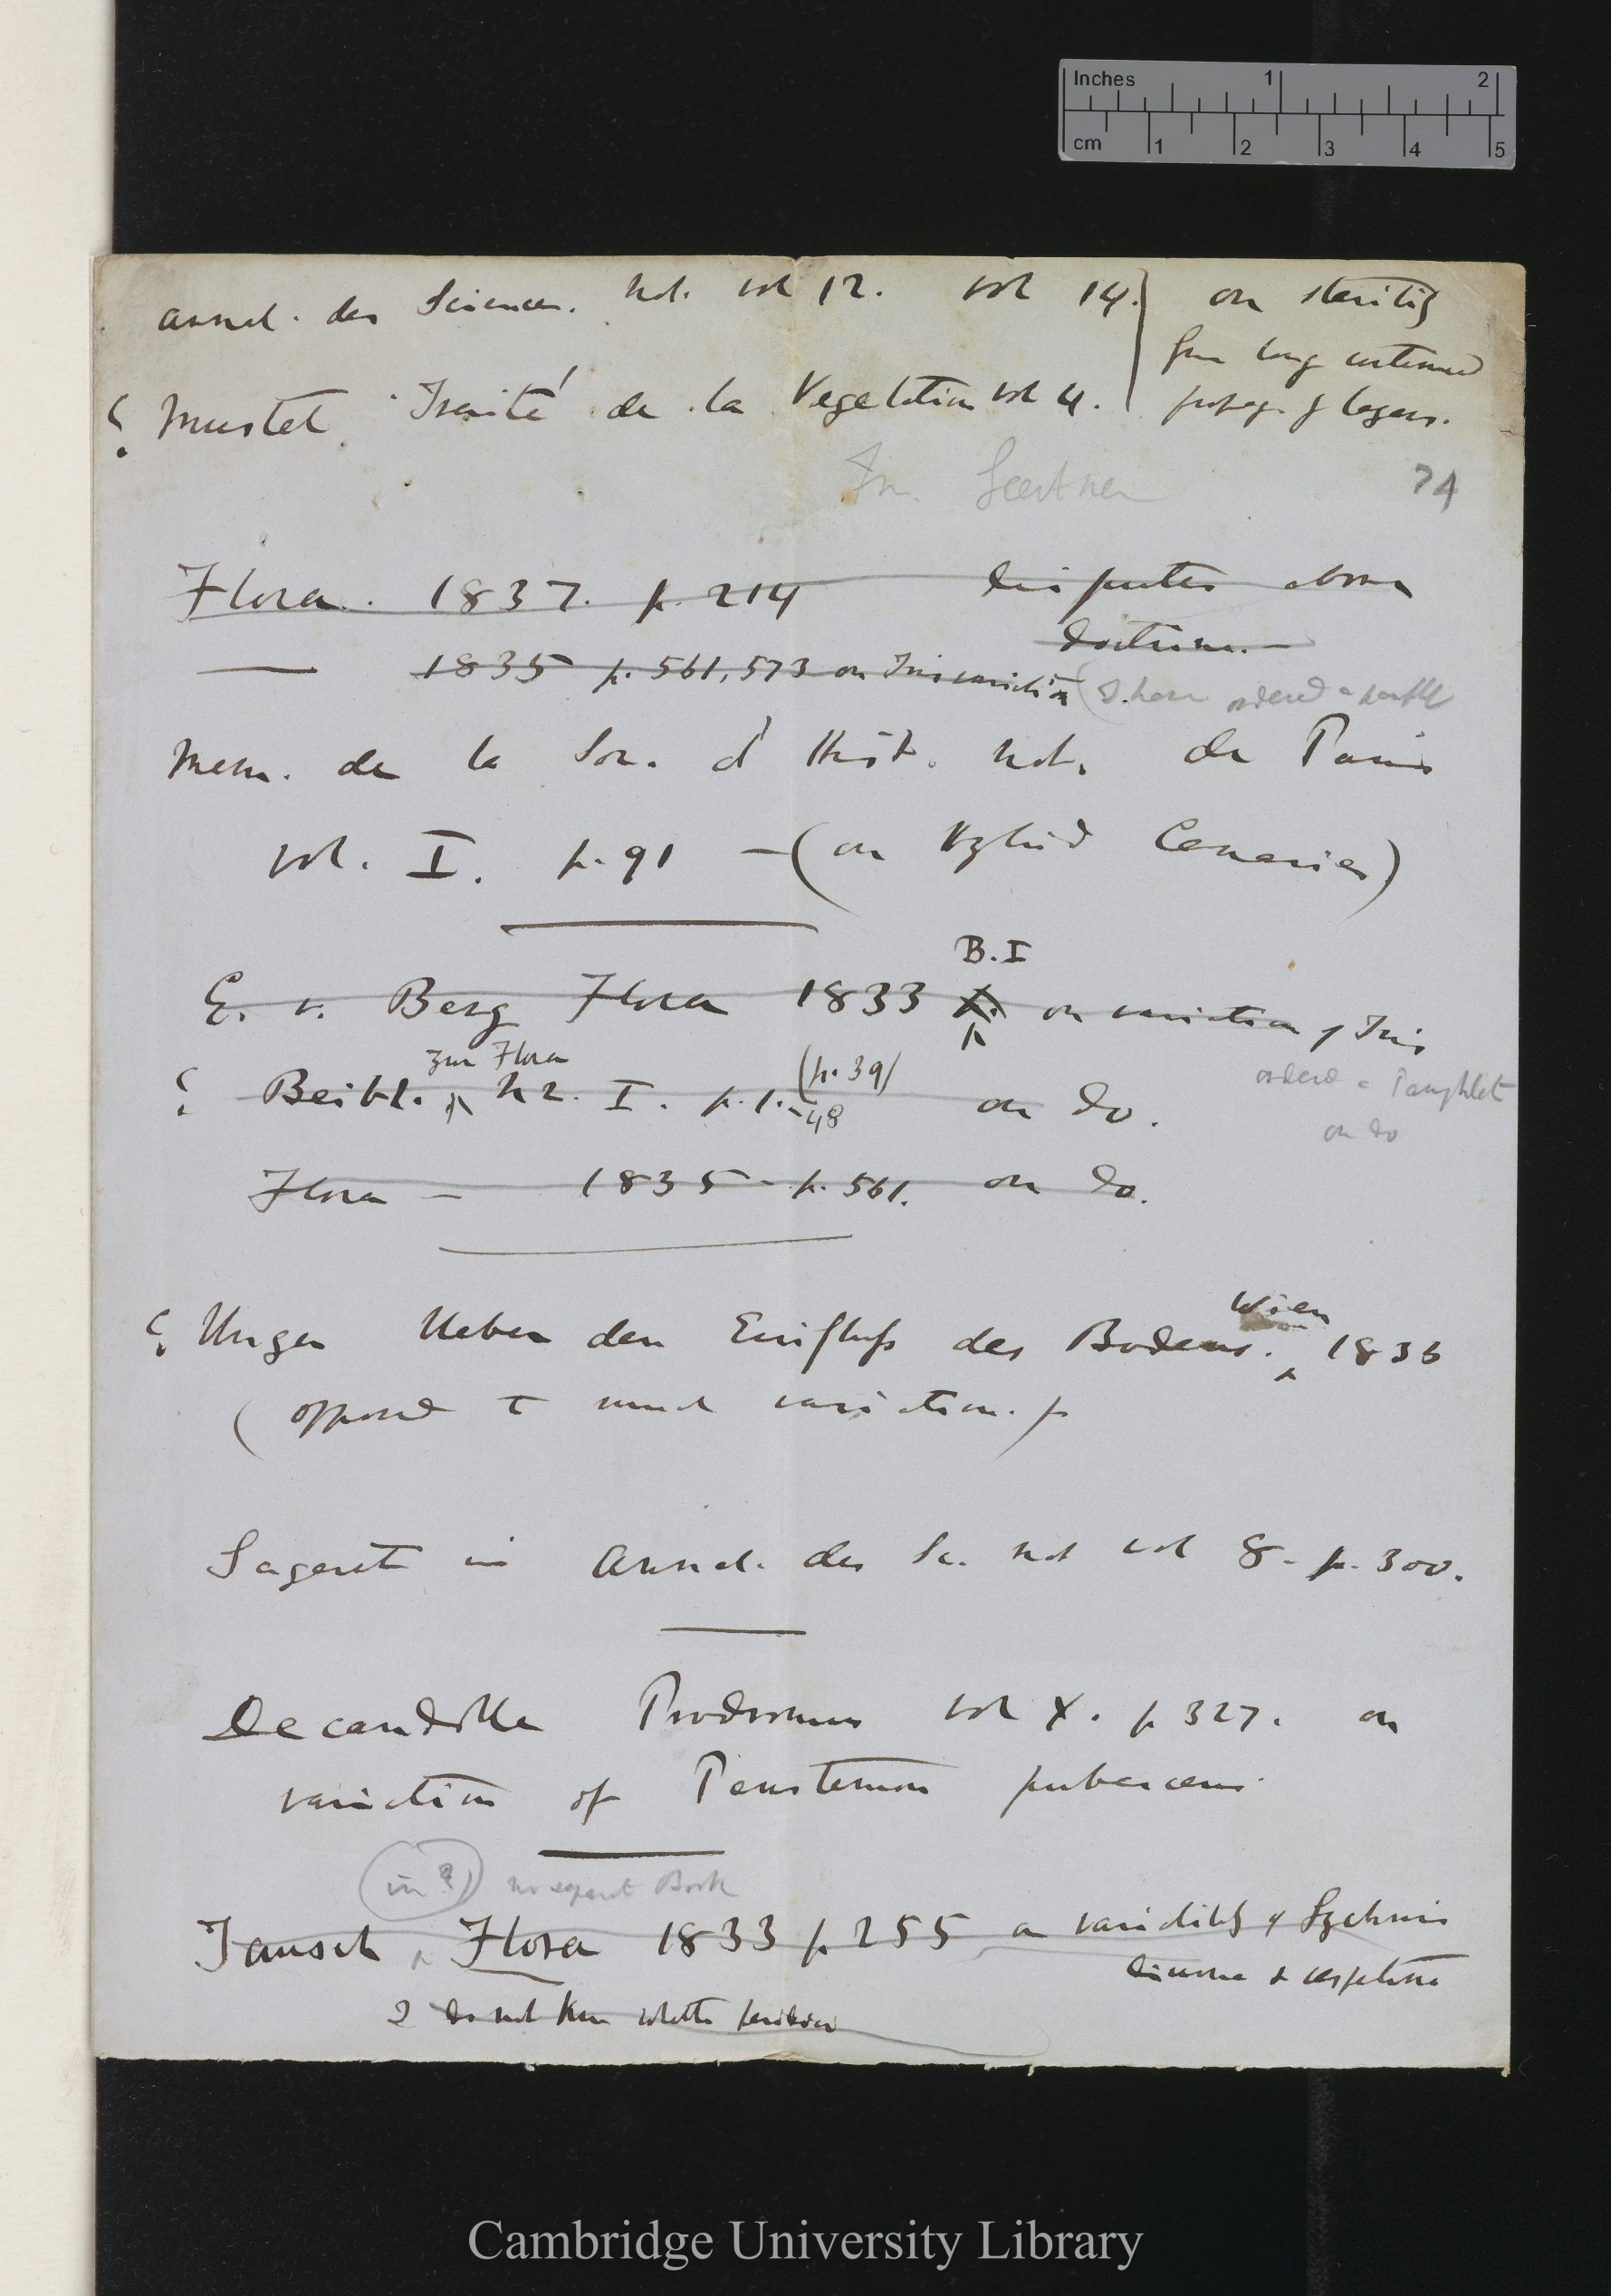 Inches 1 2
cm 1 2 3 4 5
Annal. des Sciences. Nat. vol 12. vol 14. } on sterility
from long continued
? Mustel Traité de la Vegetation vol 4. propag. of layers.
In Gaertner
74
Flora. 1837. p. 214 disputes above
doctrine.—
— 1835 p. 561, 573 on Iris variation (I have ordered a pamph
Mem. de la Soc. d'Hist. Nat. de Paris
vol. I. p. 91 — (on Hybrid Canaries)
B.I
E. v. Berg Flora 1833 on variation of Iris
zur Flora (p. 39)
? Beibl. h 2. I. p. 1.-48 on do.
ordered a Pamphlet
on do
Flora — 1835 - p. 561. on do.
Wien
? Unger Ueber den Einfluss des Bodens. 1836
(opposed to much variation.)
Sageret in Annal. des Sc. Nat vol 8. p. 300.
Decandolle Prodromus vol X. p 327. on
variation of Penstemon pubescens.
(in ?) no separate Book
Tausch Flora 1833 p 255 on variability of Lychnis
diurna & vespertina
I do not know whether period
Cambridge University Library